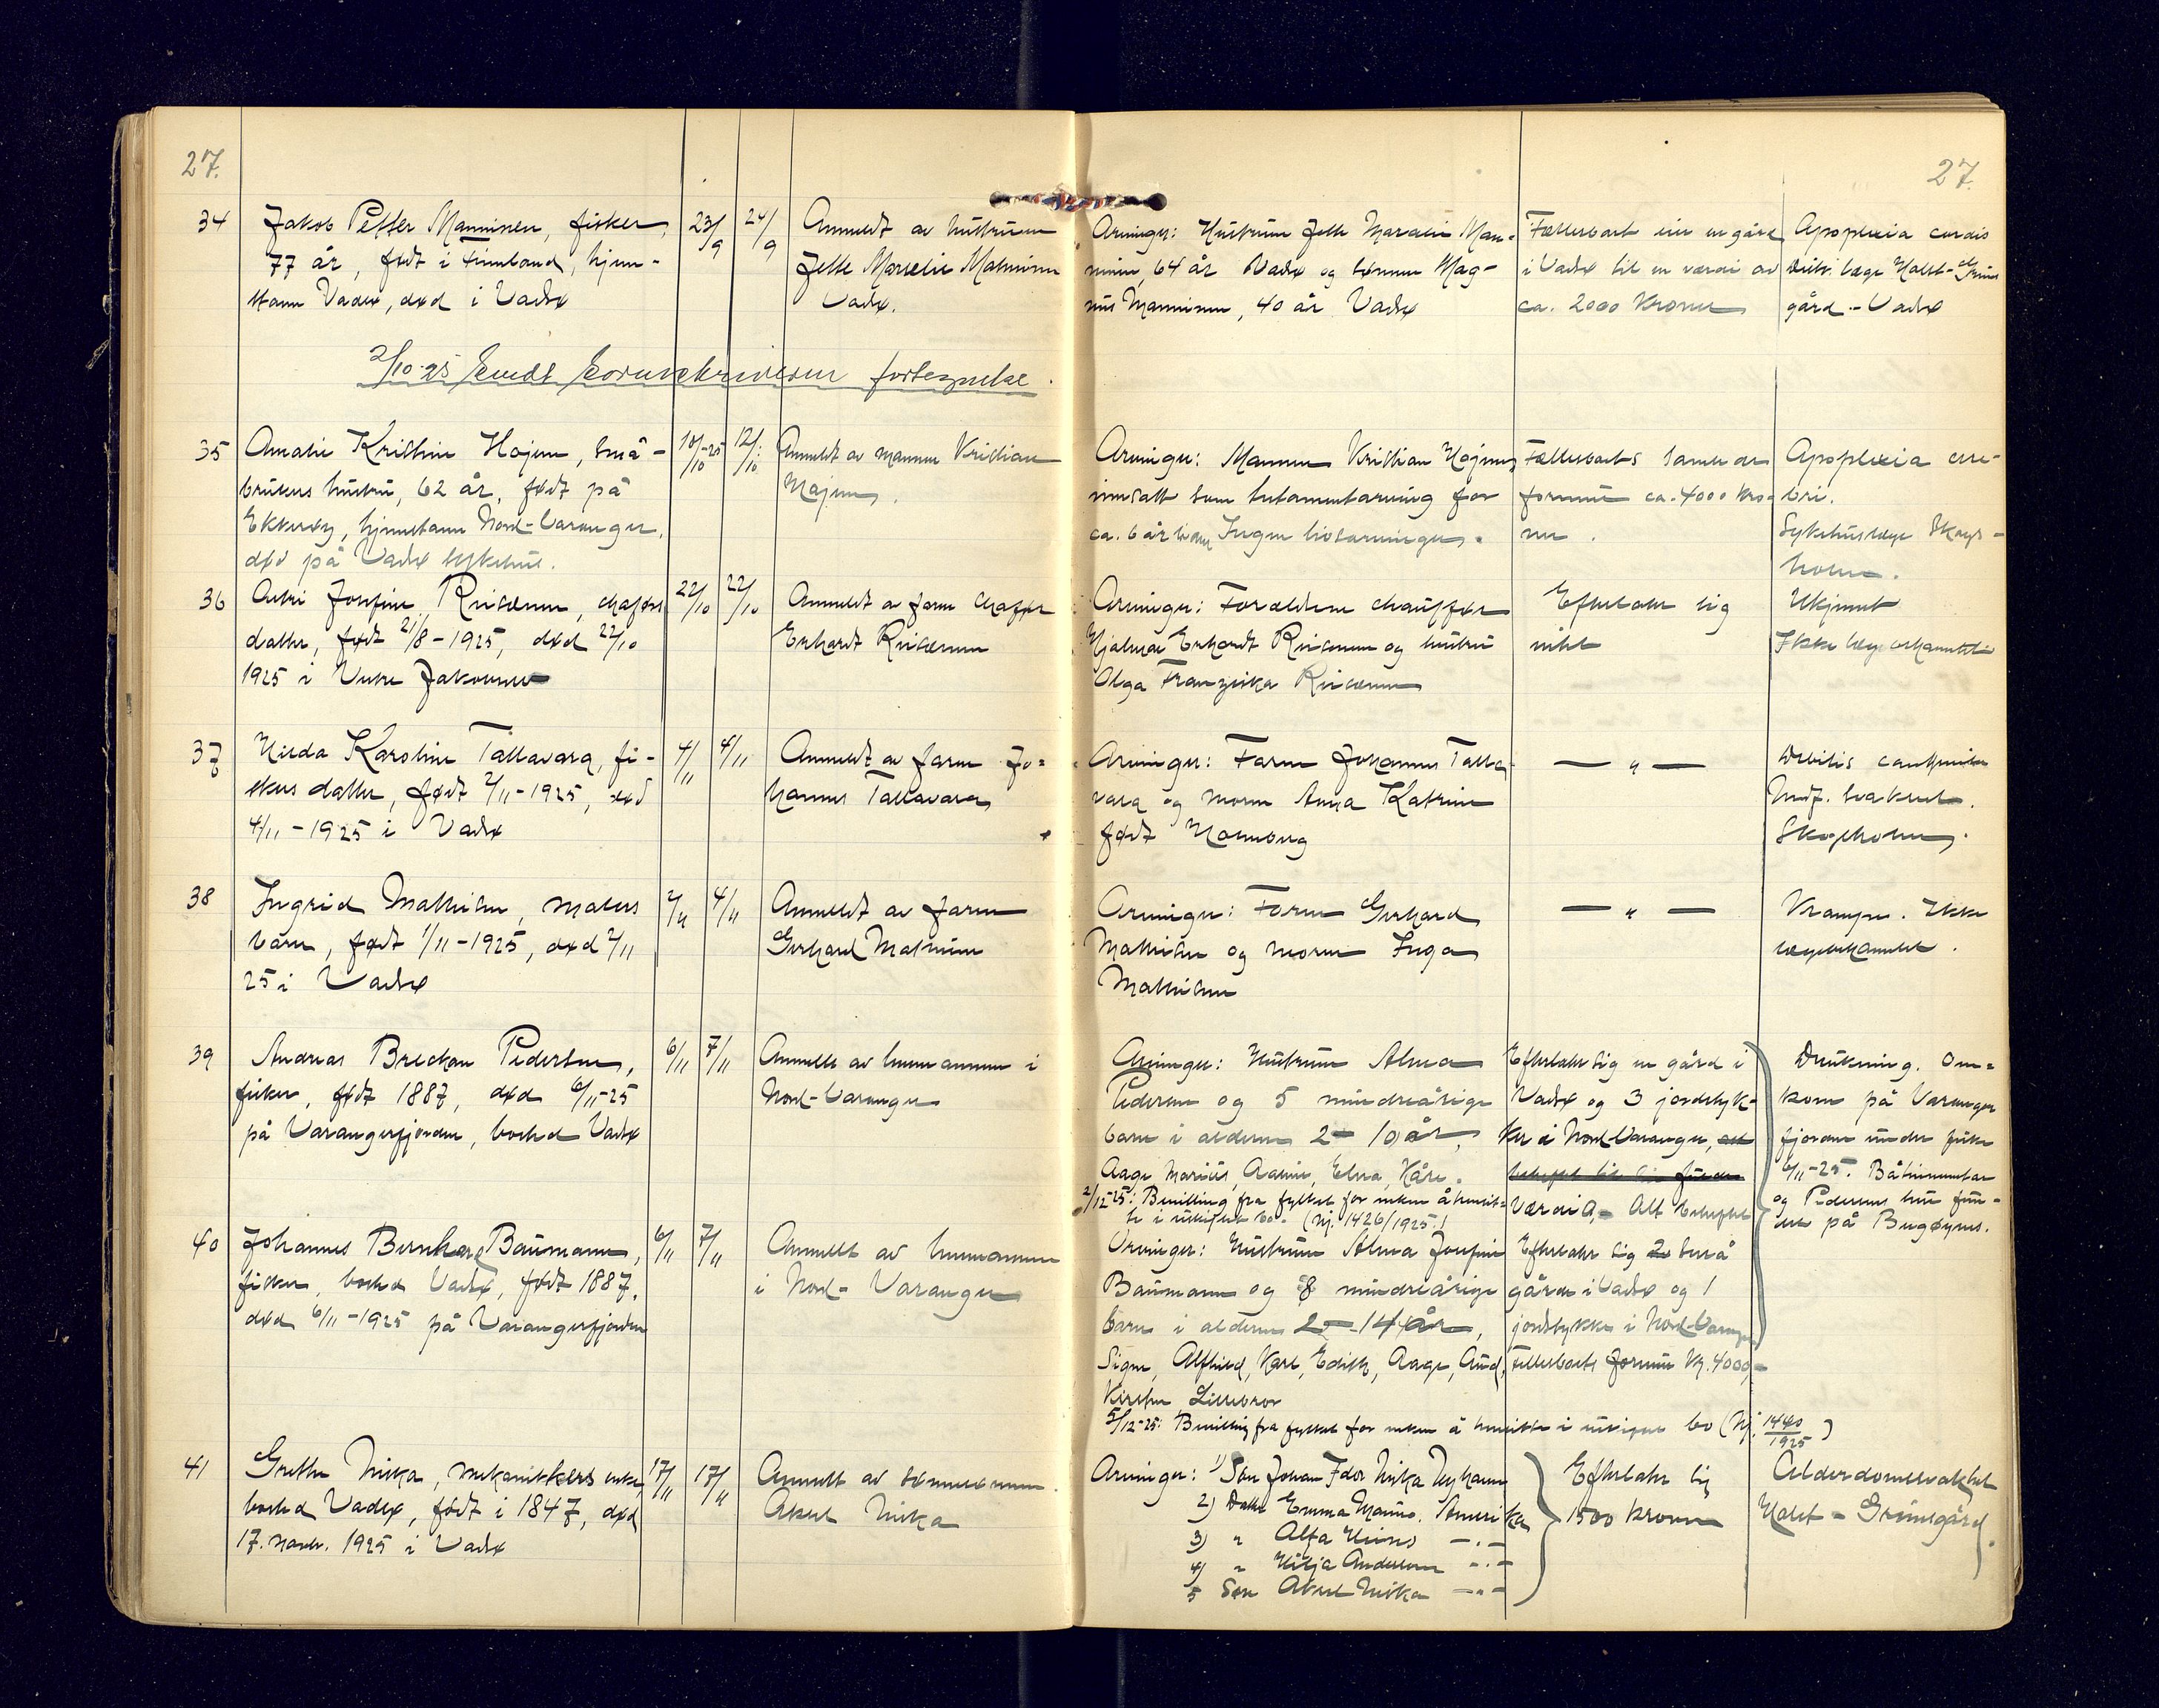 27.
27.
34
Jakob Petter Manninen, fisker,
77 år, født i Finnland, hjem-
stavn Vadsø, død i Vadsø
23/9
24/9
Anmeldt av hustruen
Jette Marselie Manninen
Vadsø.
Arvinger: Hustruen Jette Marselie Man-
ninen, 64 år Vadsø og sønnen Mag-
nus Manninen, 40 år Vadsø
Fællesboet eier en gård
i Vadsø til en værdi av
ca. 2000 kroner
Apoplexia cordis
Distr. læge Holst-Grims
gård - Vadsø
2/10-25 Sendt Sorenskriveren fortegnelse.
35
Amalie Kristine Hojem, Små-
brukers hustru, 62 år, født på
Ekkerøy, hjemstavn Nord-Varanger,
død på Vadsø sykehus.
10/10-25
12/10
Anmeldt av mannen Kristian
Hojem.
Arvinger: Mannen Kristian Hojem
innsatt som testamentarving for
ca. 6 år siden Ingen livsarvinger.
Fællesboets samlede
formue ca. 4000 kro-
ner.
Apoplexia cere-
bri.
Sykehuslæge Skogs-
holm.
36
Astri Josefine, chafførs
datter, født 21/8-1925, død 22/10
1925 i Vestre Jakobselv
22/10
22/10
Anmeldt av faren chaffør
Erhardt
Arvinger: Forældrene chauffør
Hjalmar Erhardt og hustru
Olga Franziska
Efterlater sig
intet
Ukjent
Ikke lægebehandlet
37
Hilda Karoline Tallavara, fi-
skers datter, født 2/11-1925, død
4/11-1925 i Vadsø
4/11
4/11
Anmeldt av faren Jo-
hannes Tallavara
Arvinger: Faren Johannes Talla-
vara og moren Anna Katrine
født Hannberg
— " —
Debilis
Skogholm.
38
Ingrid Mathisen, malers
barn, født 1/11-1925, død 2/11
25 i Vadsø
2/11
4/11
Anmeldt av faren
Gerhard Mathisen
Arvinger: Faren Gerhard
Mathisen og moren Inga
Mathisen
— " —
Krampe. Ikke
lægebehandlet.
39
Andreas Breckan Pedersen,
fisker, født 1887, død 6/11-25
på Varangerfjorden, bosted Vadsø
6/11
7/11
Anmeldt av lensmannen i
Nord-Varanger
Arvinger: Hustruen Alma
Pedersen og 5 mindreårige
barn i alderen 2 - 10 år,
Aage Marius, Aasmu, Elna, Kåre.
2/12-25: Bevilling fra fylket for enken å hensit-
te i uskiftet bo. (Nj. 1426/1925.)
Efterlater sig en gård i
Vadsø og 3 jordstyk-
ker i Nord-Varanger,
Værdi 0,- Alt beheftet
Drukning. Om-
kom på Varanger
fjorden under fiske
6/11-25. Båten
og Pedersens
på Bugøynes.
40
Johannes Bernhard Baumann,
fisker, bosted Vadsø, født 1887,
død 6/11-1925 på Varangerfjorden
6/11
7/11
Anmeldt av lensmannen
i Nord-Varanger
Arvinger: Hustruen Alma Josefine
Baumann og 8 mindreårige
barn i alderen 2 - 14 år,
Signe, Alfhild, Karl, Edith, Aage, Aud,
Kirsten Lillebror
5/12-25: Bevilling fra fylket for enken å hensitte i uskiftet bo (Nj. 1440/1925)
Efterlater sig 2 små
gårde i Vadsø og 1
jordstykke i Nord-Varanger
Fellesboets formue kr. 4000,-
41
Grethe Niska, mekanikkers enke,
bosted Vadsø, født i 1847, død
17. novbr. 1925 i Vadsø
17/11
17/11
Anmeldt av
Aksel Niska
Arvinger: 1) Søn Johan Fdor Niska Nyhamn
2) Datter Emma Mannio, Amerika
3) " Alfa Heino — . —
4) " Hilja Andersen — . —
5 Søn Aksel Niska — " —
Efterlater sig
1500 kroner
Alderdomssvakhet
Holst - Grimsgård.